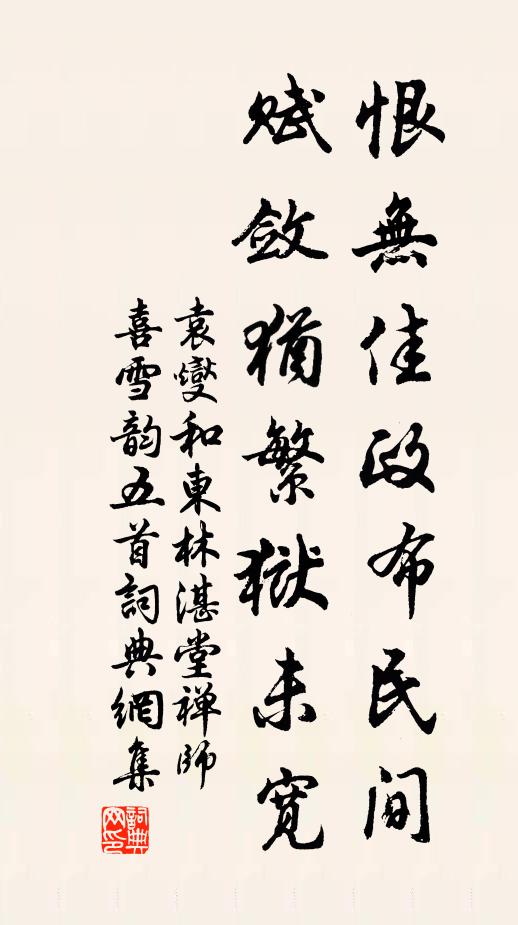 恨無佳政布民間
賦斂猶繁獄未寬
袁燮和東林湛堂禅師
喜雪韵五首詞典網集
詞典网印